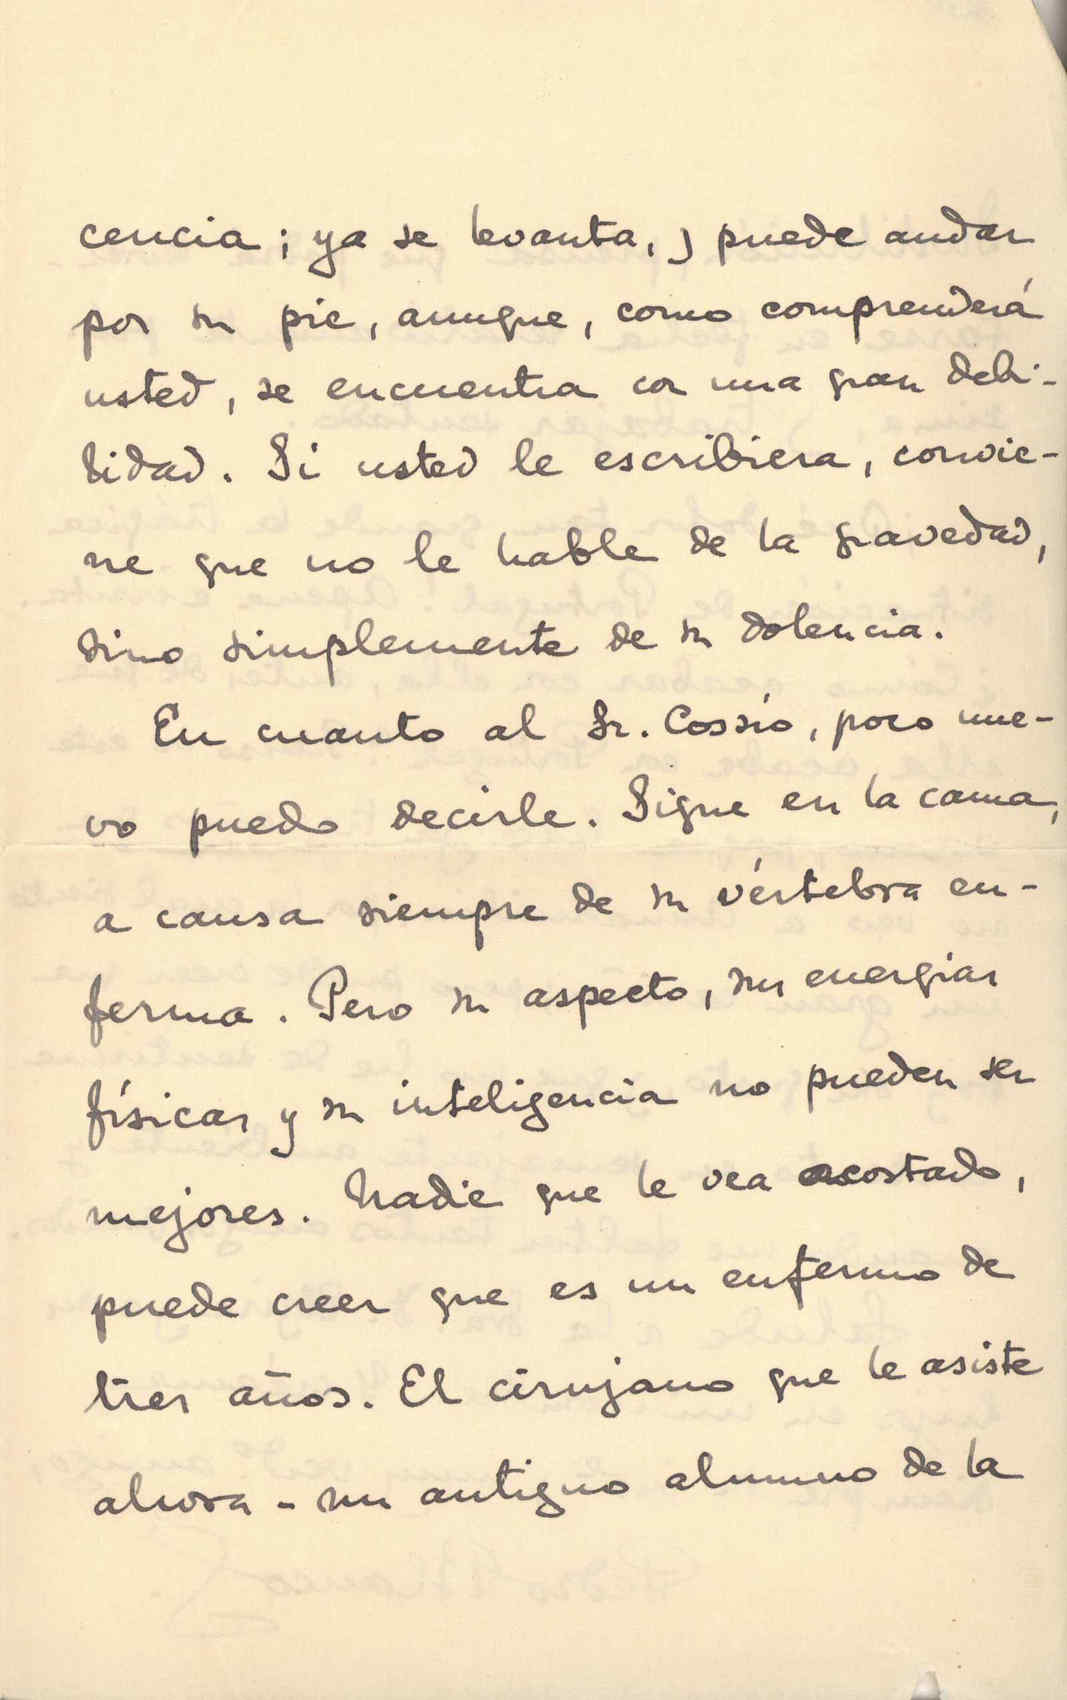 cencia; ya se levanta, y puede andar
por su pie, aunque, como comprenderá
usted, se encuentra con una gran debi-
lidad. Si usted le escribiera, convie-
ne que no le hable de la gravedad,
sino simplemente de su dolencia.
En cuanto al Sr. Cossío, poco nue-
vo puedo decirle. Sigue en la cama,
a causa siempre de su vértebra en-
ferma. Pero su aspecto, sus energias
físicas y su inteligencia no pueden ser
mejores. Nadie que le vea acostado,
puede creer que es un enfermo de
tres años. El cirujano que le asiste
ahora - un antiguo alumno de la